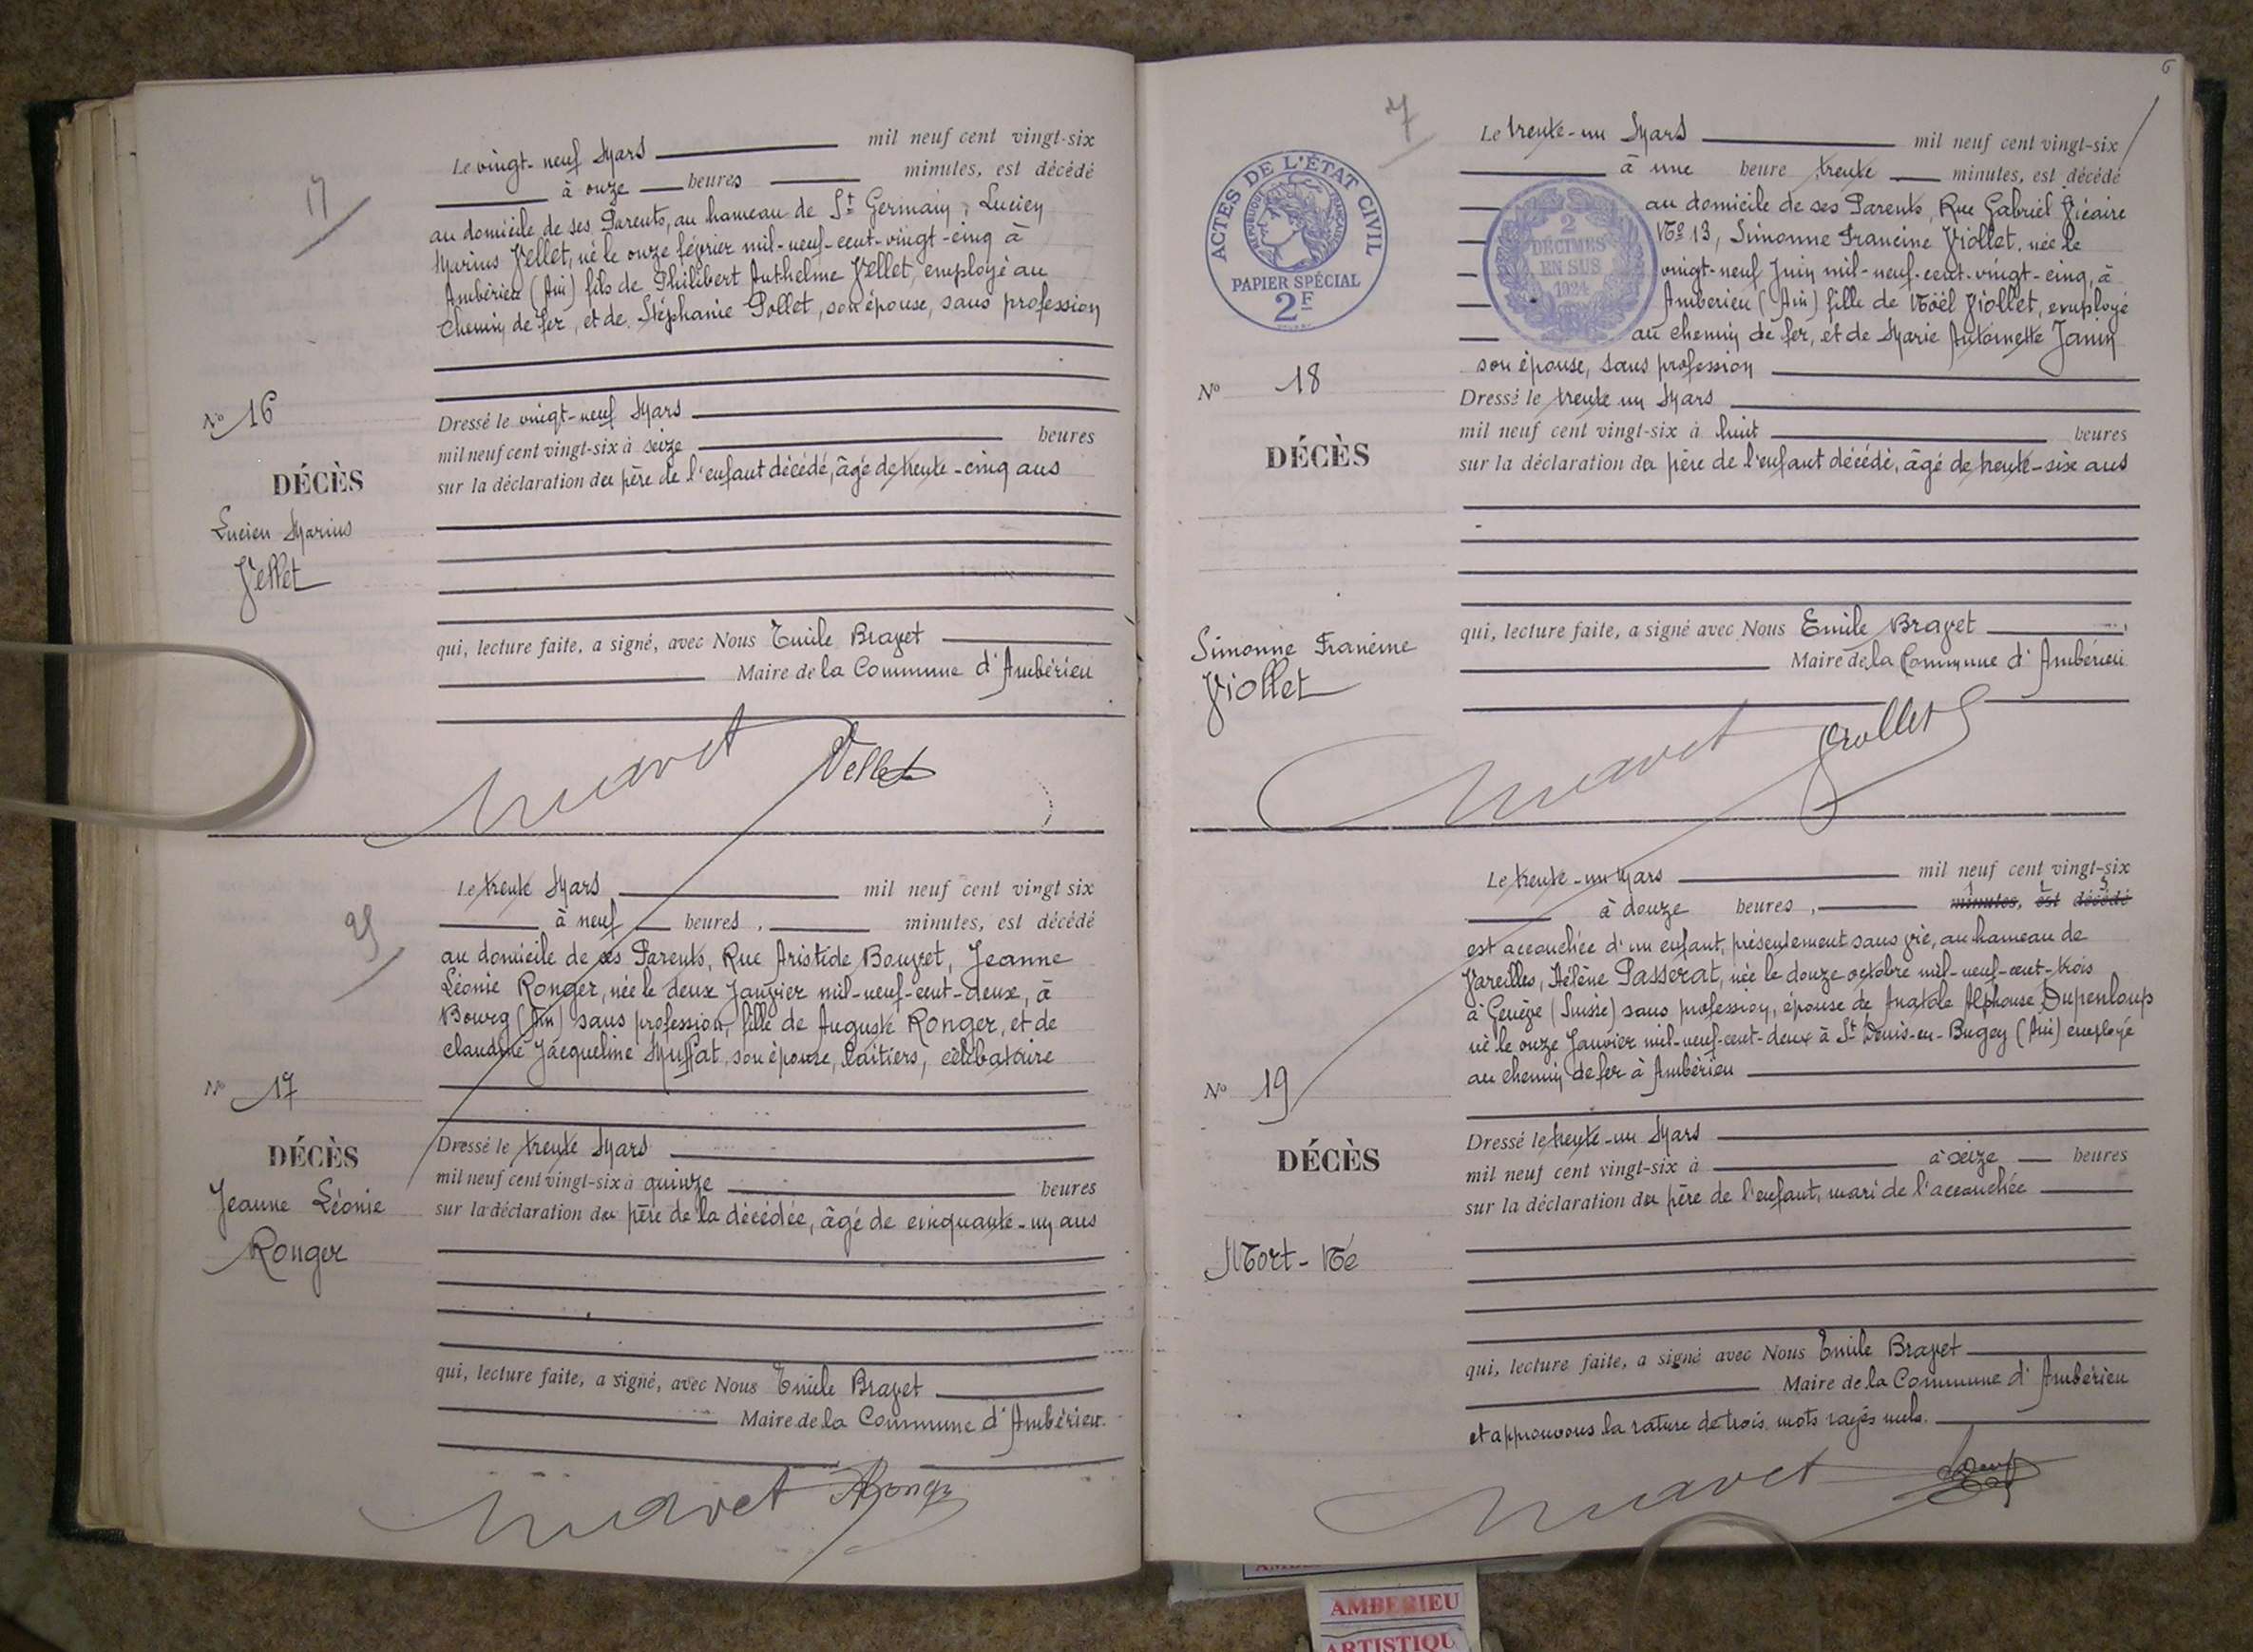 17
Le vingt-neuf Mars mil neuf cent vingt-six
à onze heures minutes, est décédé
au domicile de ses Parents, au hameau de St Germain, Lucien
Marius Vellet, né le onze février mil-neuf-cent-vingt-cinq à
Ambérieu (Ain) fils de Philibert Anthelme Vellet, employé au
Chemin de fer, et de Stéphanie Pollet, son épouse, sans profession
No 16
DÉCÈS
Lucien Marius
Vellet
Dressé le vingt-neuf Mars
mil neuf cent vingt-six à seize heures
sur la déclaration du père de l'enfant décédé, âgé de trente-cinq ans
qui, lecture faite, a signé, avec Nous Emile Bravet
Maire de la Commune d'Ambérieu
Bravet Vellet
25
Le trente Mars mil neuf cent vingt six
à neuf heures, minutes, est décédé
au domicile de ses Parents, Rue Aristide Bouvet, Jeanne
Léonie Ronger, née le deux Janvier mil-neuf-cent-deux, à
Bourg (Ain) sans profession, fille de Auguste Ronger, et de
Claudine Jacqueline Muffat, son épouse, laitiers, célibataire
No 17
DÉCÈS
Jeanne Léonie
Ronger
Dressé le trente Mars
mil neuf cent vingt-six à quinze heures
sur la déclaration du père de la décédée, âgé de cinquante-un ans
qui, lecture faite, a signé, avec Nous Emile Bravet
Maire de la Commune d'Ambérieu
Bravet Ronger
6
7
ACTES DE L'ÉTAT CIVIL
RÉPUBLIQUE FRANÇAISE
PAPIER SPÉCIAL
2F
2
DÉCIMES
EN SUS
1924
Le trente-un Mars mil neuf cent vingt-six
à une heure trente minutes, est décédé
au domicile de ses Parents, Rue Gabriel Vicaire
No 13, Simonne Francine Viollet, née le
vingt-neuf Juin mil-neuf-cent-vingt-cinq, à
Amberieu (Ain) fille de Noël Viollet, employé
au chemin de fer, et de Marie Antoinette Janin
son épouse, sans profession
No 18
DÉCÈS
Simonne Francine
Viollet
Dressé le trente un Mars
mil neuf cent vingt-six à huit heures
sur la déclaration du père de l'enfant décédé, âgé de trente-six ans
qui, lecture faite, a signé avec Nous Emile Bravet
Maire de la Commune d'Ambérieu
Bravet Viollet
Le trente-un Mars mil neuf cent vingt-six
1 2 3
à douze heures, minutes, est décédé
est accouchée d'un enfant, présentement sans vie, au hameau de
Vareilles, Hélène Passerat, née le douze octobre mil-neuf-cent-trois
à Genève (Suisse) sans profession, épouse de Anatole Alphonse Dupenloup
né le onze Janvier mil-neuf-cent-deux à St Denis-en-Bugey (Ain) employé
au chemin de fer à Ambérieu
No 19
DÉCÈS
Mort-Né
Dressé le trente-un Mars
mil neuf cent vingt-six à à seize heures
sur la déclaration du père de l'enfant, mari de l'accouchée
qui, lecture faite, a signé avec Nous Emile Bravet
Maire de la Commune d'Ambérieu
et approuvons la rature de trois mots rayés nuls.
Bravet
AMBERIEU
ARTISTIQU